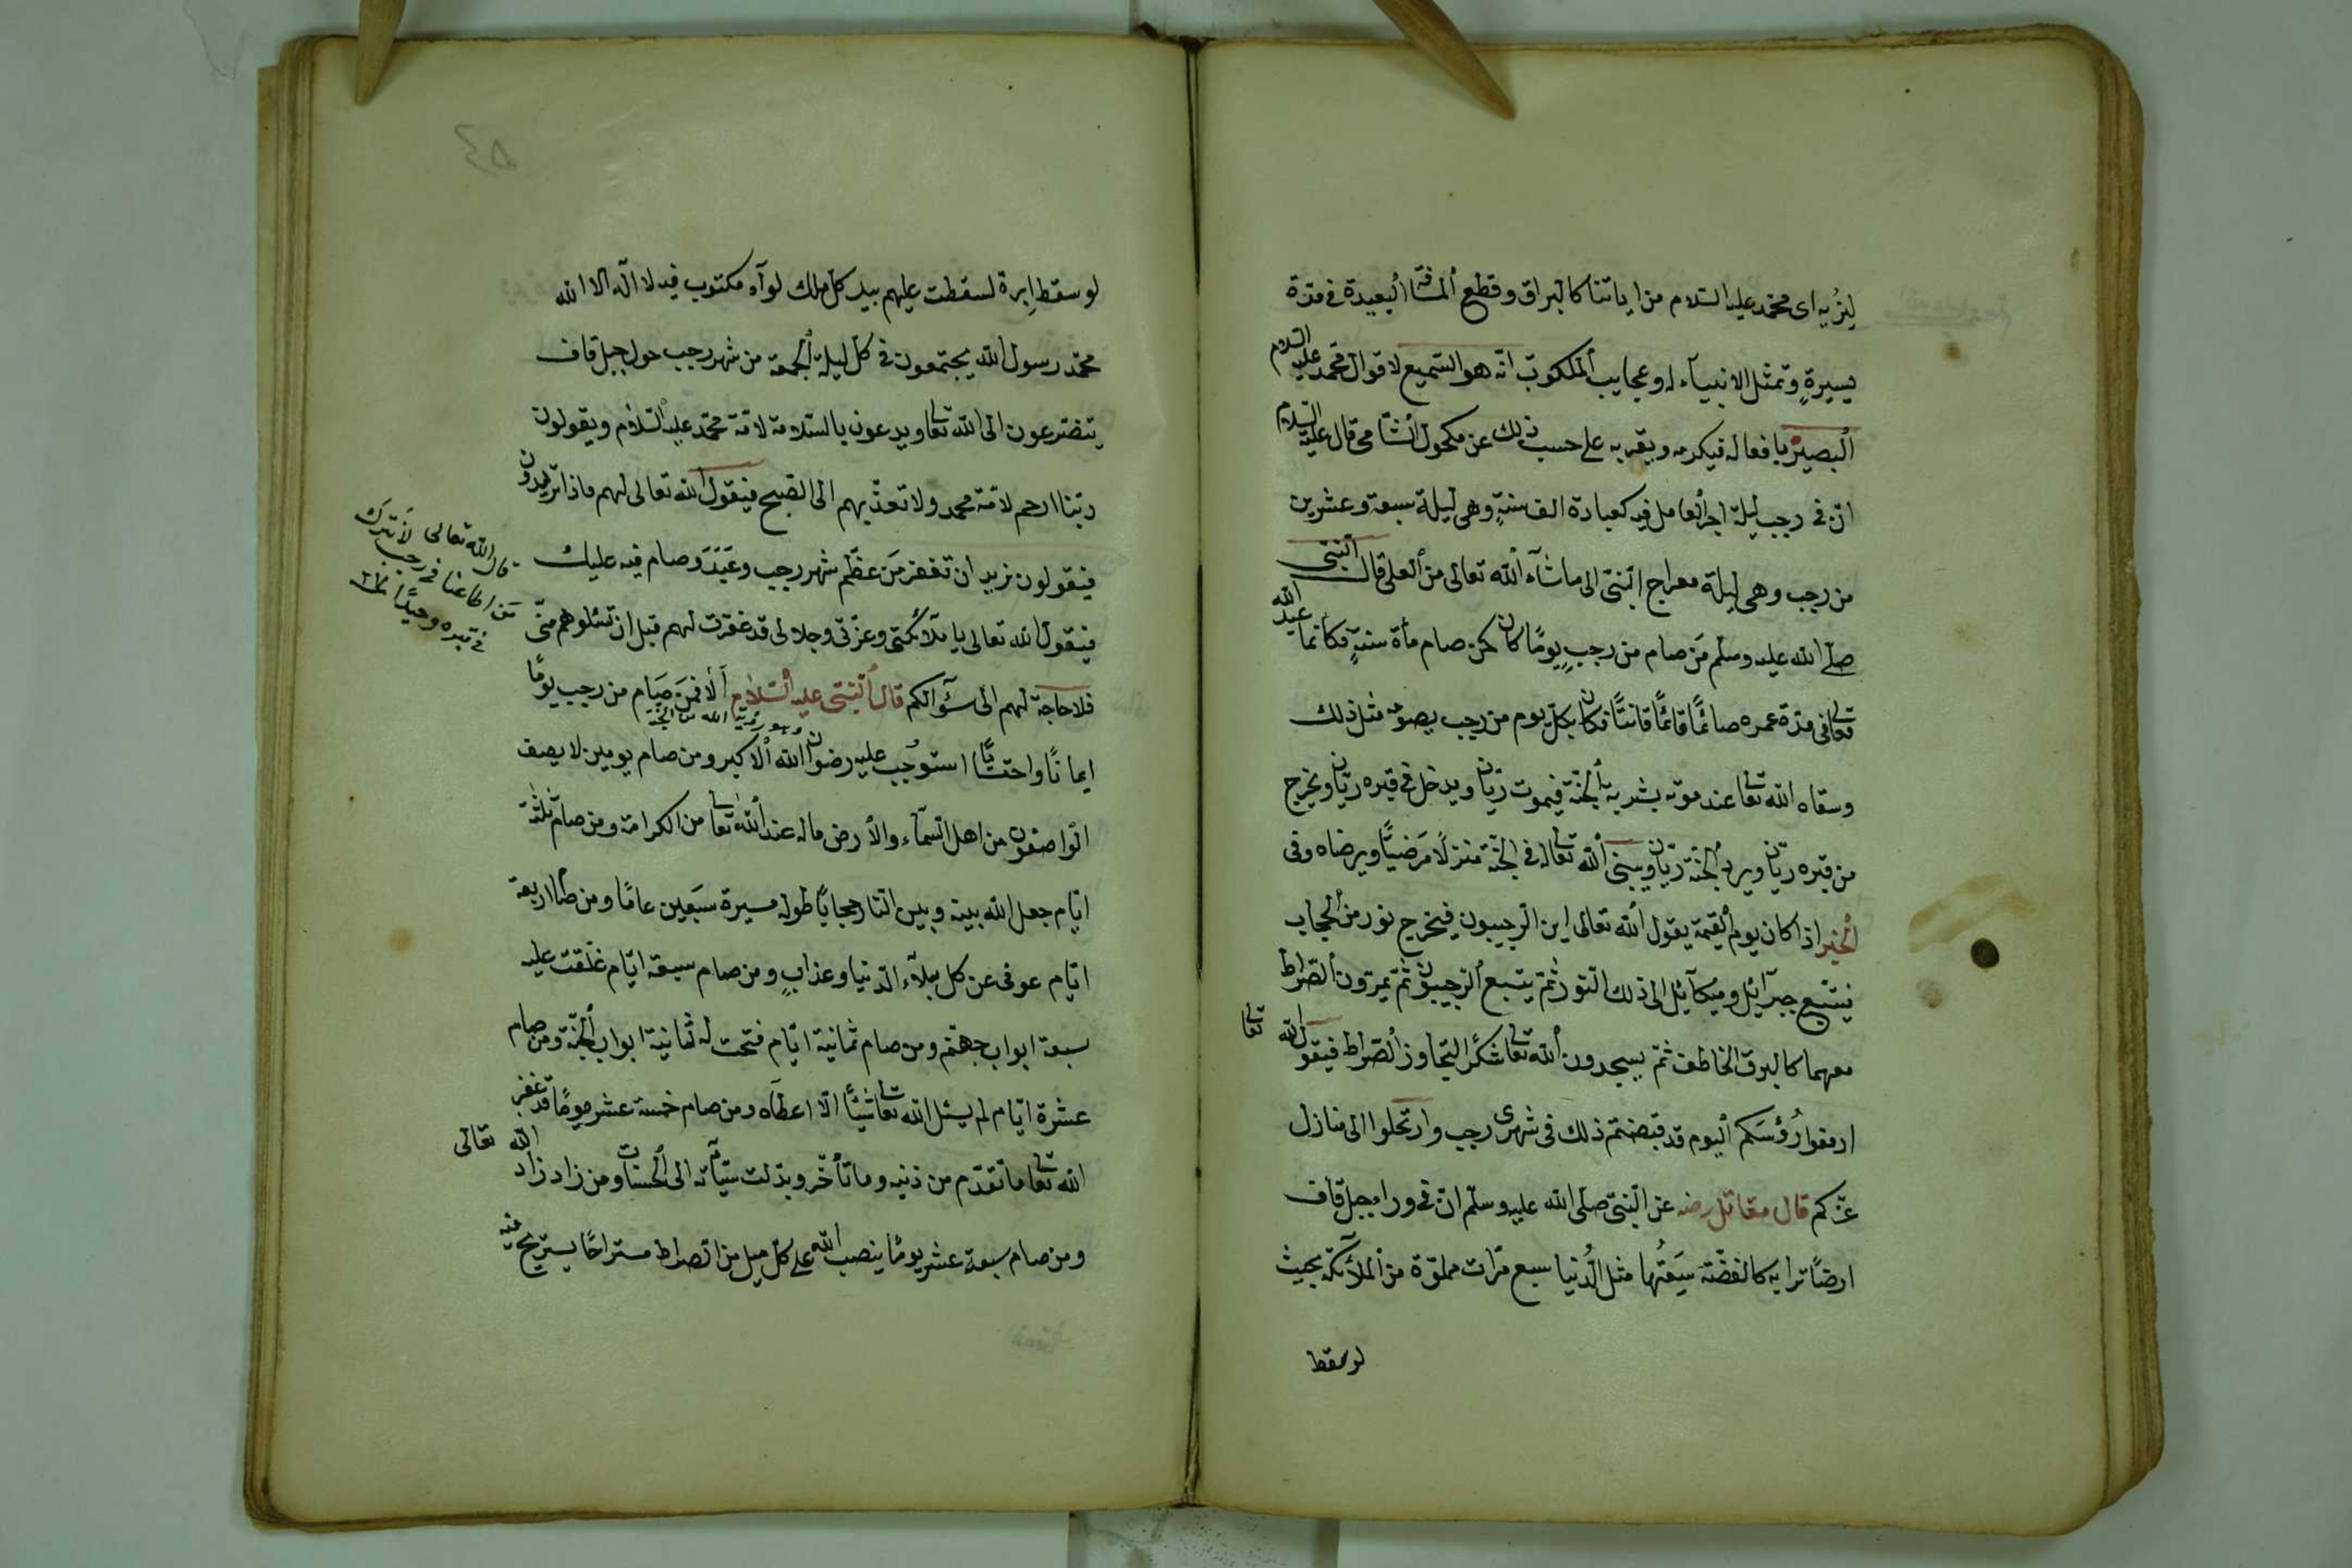 لنريه اى محمد عليه السلام من اياتنا كالبراق وقطع المسافة البعيدة فى مدة
يسيرةٍ وتمثل الانبيآء له وعجايب الملكوت انه هو السميع لاقوال محمد عليه السلام
البصير بافعاله فيكرمه ويقربه على حسب ذلك عن مكحول الشامى قال عليه السلام
ان فى رجب ليلة اجر العامل فيه كعبادة الف سنةٍ وهى ليلة سبعة وعشرين
من رجب وهى ليلة معراج النبى الى ماشآء الله تعالى من العلى قال النبى
صلى الله عليه وسلم مَن صام من رجبٍ يومًا كان كمن صام مأة سنةٍ فكانما عبد الله
تعالى فى مدة عمره صائمًا قائمًا قانتًا فكان بكل يوم من رجب يصومه مثل ذلك
وسقاه الله تعالى عند موته بشربة الجنة فيموت ريان ويدخل فى قبره ريان ويخرج
من قبره ريان ويرد الجنة ريان ويبنى الله تعالى له فى الجنة منزلًا مَرضيًّا ويرضاه وفى
الخبر اذا كان يوم القيمة يقول الله تعالى اين الرجبيون فيخرج نور من الحجاب
فيتبع جبرآئيل وميكآئيل الى ذلك النور ثم يتبع الرجبيون ثم يمرون الصراط
معهما كالبرق الخاطف ثم يسجدون الله تعالى شكرًا لتجاوز الصراط فيقول الله تعالى
ارفعوا رُؤسَكم اليوم قد قبضتم ذلك فى شهرى رجب وارتحلوا الى منازل
عزكم قال مقاتل رضه عن النبى صلى الله عليه وسلم ان فى ورا جبل قاف
ارضًا ترابه كالفضة سَعَتُها مثل الدُنيا سبع مرات مملوّة من الملآئكة بحيث
لو سقط
لو سقط اِبرة لسقطت عليهم بيد كل ملك لوآء مكتوب فيه لا اله الا الله
محمد رسول الله يجتمعون فى كل ليلة الجمعة من شهر رجب حول جبل قاف
يتضرعون الى الله تعالى ويدعون بالسلامة لامة محمد عليه السلام ويقولون
ربنا ارحم لامة محمد ولا تعذبهم الى الصبح فيقول الله تعالى لهم ماذا تريدون
فيقولون نريد ان تغفر مَن عظّم شهر رجب وعَيَّدَ وصام فيه عليك
فيقول الله تعالى يا ملآئكتى وعزتى وجلالى قد غفرت لهم قبل ان تسئلوهم منى
فلا حاجة لهم الى سؤآلكم قال النبى عليه السلام اَلا فمَن صَام من رجب يومًا
وهو رؤية الله من الجنة
ايمانًا واحتسابًا استوجب عليه رضوان الله الاكبر ومن صام يومين لا يصف
الواصفون من اهل السمآء والأرض ماله عند الله تعالى من الكرامة ومن صام ثلثة
ايام جعل الله بينه وبين النار حجابًا طوله مسيرة سَبعين عامًا ومن صام اربعة
ايام عوفى عن كل بلآء الدنيا وعذابٍ ومن صام سبعة ايام غلقت عليه
سبعة ابواب جهنم ومن صام ثمانية ايام فتحت له ثمانية ابواب الجنة ومن صام
عشرة ايام لم يسئل الله تعالى شيئًا الا اعطآه ومن صام خمسة عشر يومًا قد غفر
الله تعالى ماتقدم من ذنبه وماتأخّر وبدلت سيّآته الى الحسنات ومن زاد زاد الله تعالى
ومن صام سبعة عشر يومًا ينصب الله على كل ميل من الصراط مستراحًا يستريح فيه
قال الله تعالى لاَ نَترك
مَن اطاعنا فى رجب
فى قبره وحيدًا
٥٤